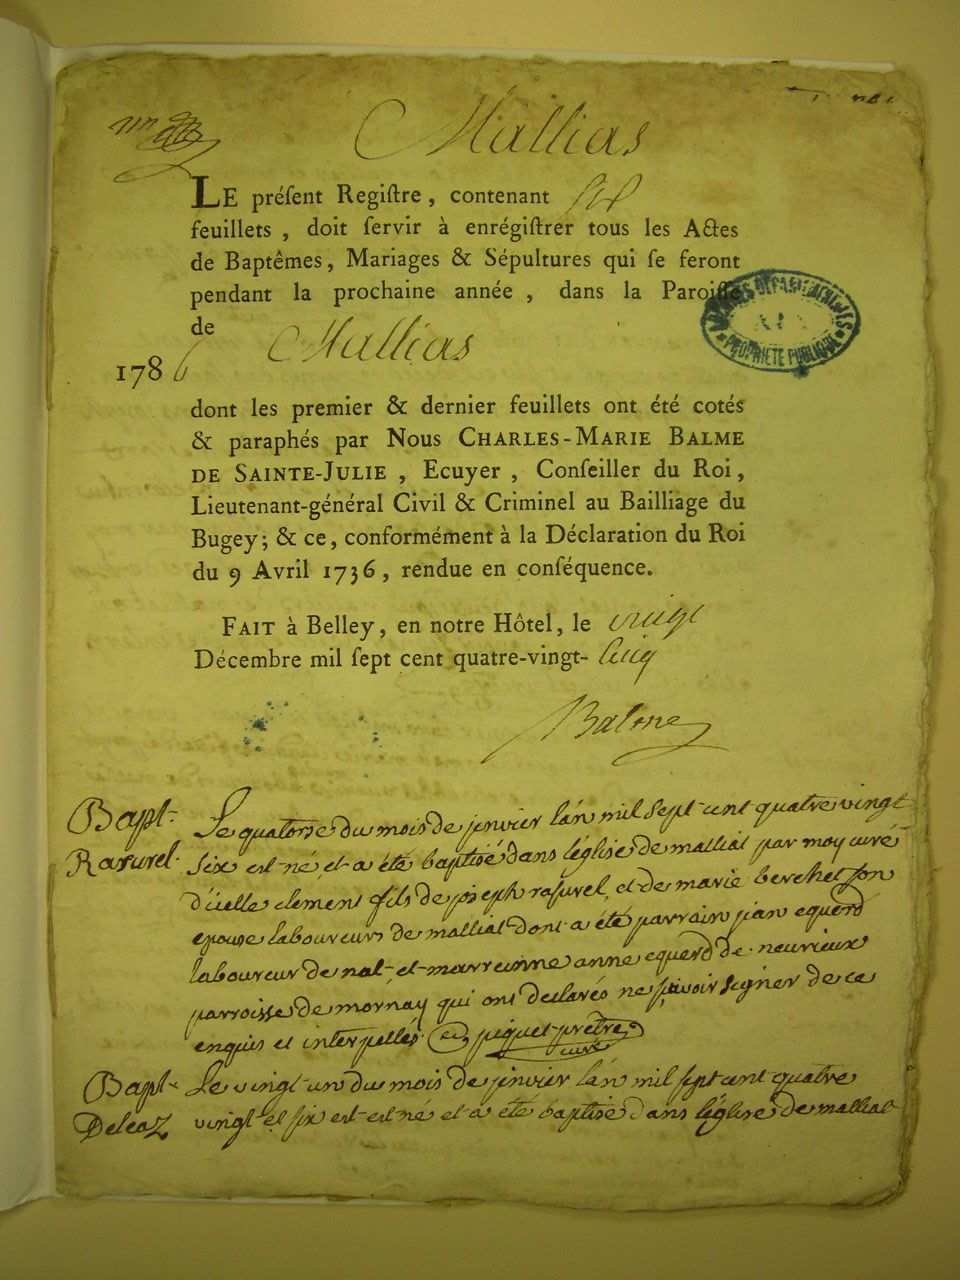 Mallias
LE préſent Regiſtre, contenant six
feuillets, doit ſervir à enrégiſtrer tous les Actes
de Baptêmes, Mariages & Sépultures qui ſe feront
pendant la prochaine année, dans la Paroiſſe
de Mallias
1786
dont les premier & dernier feuillets ont été cotés
& paraphés par Nous CHARLES-MARIE BALME
DE SAINTE-JULIE, Ecuyer, Conſeiller du Roi,
Lieutenant-général Civil & Criminel au Bailliage du
Bugey; & ce, conformément à la Déclaration du Roi
du 9 Avril 1736, rendue en conſéquence.
FAIT à Belley, en notre Hôtel, le vingt
Décembre mil ſept cent quatre-vingt-cinq
Balme
ARCHIVES DÉPARTEMENTALES
AIN
PROPRIÉTÉ PUBLIQUE
Bapt
Rasurel
Le quatorse du mois de janvier lán mil sept cent quatre vingt
six est né et a été baptisé dans léglise de malliat par moy curé
d'icelle clement fils de joseph rasurel et de marie berchet son
epouse laboureurs de malliat dont a été parrain jean equerd
laboureur de nat et marrenne anne equerd de neurieux
parroisse de mornay qui ont declarés ne sçavoir signer de ce
enquis et interpellés piquet prêtre
curé
Bapt
Deleaz
Le vingt un du mois de janvier lán mil sept cent quatre
vingt et six est né et a été baptisé dans léglise de malliat